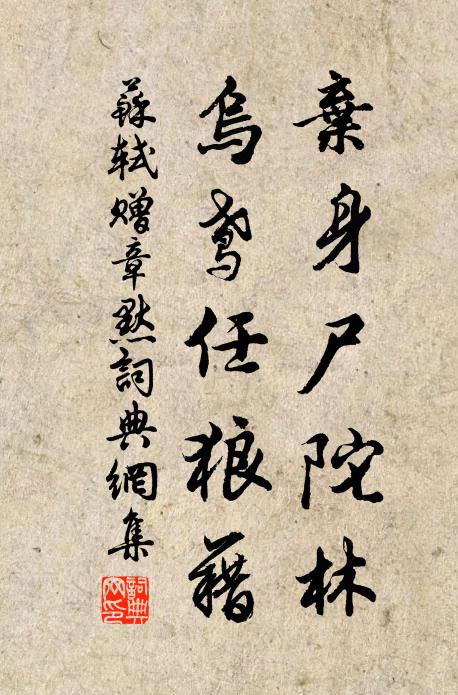 棄身尸陀林
烏鳶任狼藉
蘇軾贈章默詞典網集
詞典網印